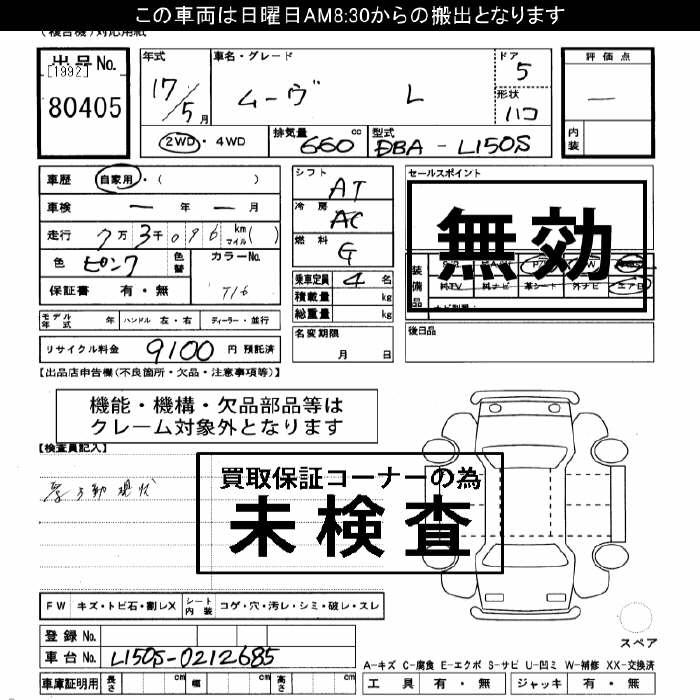 この車両は日曜日AM8:30からの搬出となります
(複合機)対応用紙
出品No.
[1992]
80405
年式
17/5月
車名・グレード
ムーヴ L
ドア
5
形状
ハコ
評価点
—
内装
2WD・4WD
排気量 660 cc
型式 DBA-L150S
車歴 自家用・( )
車検 — 年 — 月
走行 7万3千096 km マイル( )
色 ピンク 色替
カラーNo. T16
保証書 有・無
シフト AT
冷房 AC
燃料 G
乗車定員 4 名
積載量 kg
総重量 kg
名変期限
月 日
セールスポイント
無効
装備品
純TV 純ナビ 革シート 外ナビ エアB
後日品
モデル年式 年 ハンドル 左・右 ディーラー・並行
リサイクル料金 9100 円 預託済
【出品店申告欄(不良箇所・欠品・注意事項等)】
機能・機構・欠品部品等は
クレーム対象外となります
【検査員記入】
現状
買取保証コーナーの為
未検査
FW キズ・トビ石・割レX シート内装 コゲ・穴・汚レ・シミ・破レ・スレ
登録No.
車台No. L150S-0212685
車庫証明用 長さ cm 幅 cm 高さ cm
スペア
A-キズ C-腐食 E-エクボ S-サビ U-凹ミ W-補修 XX-交換済
工具 有・無 ジャッキ 有・無